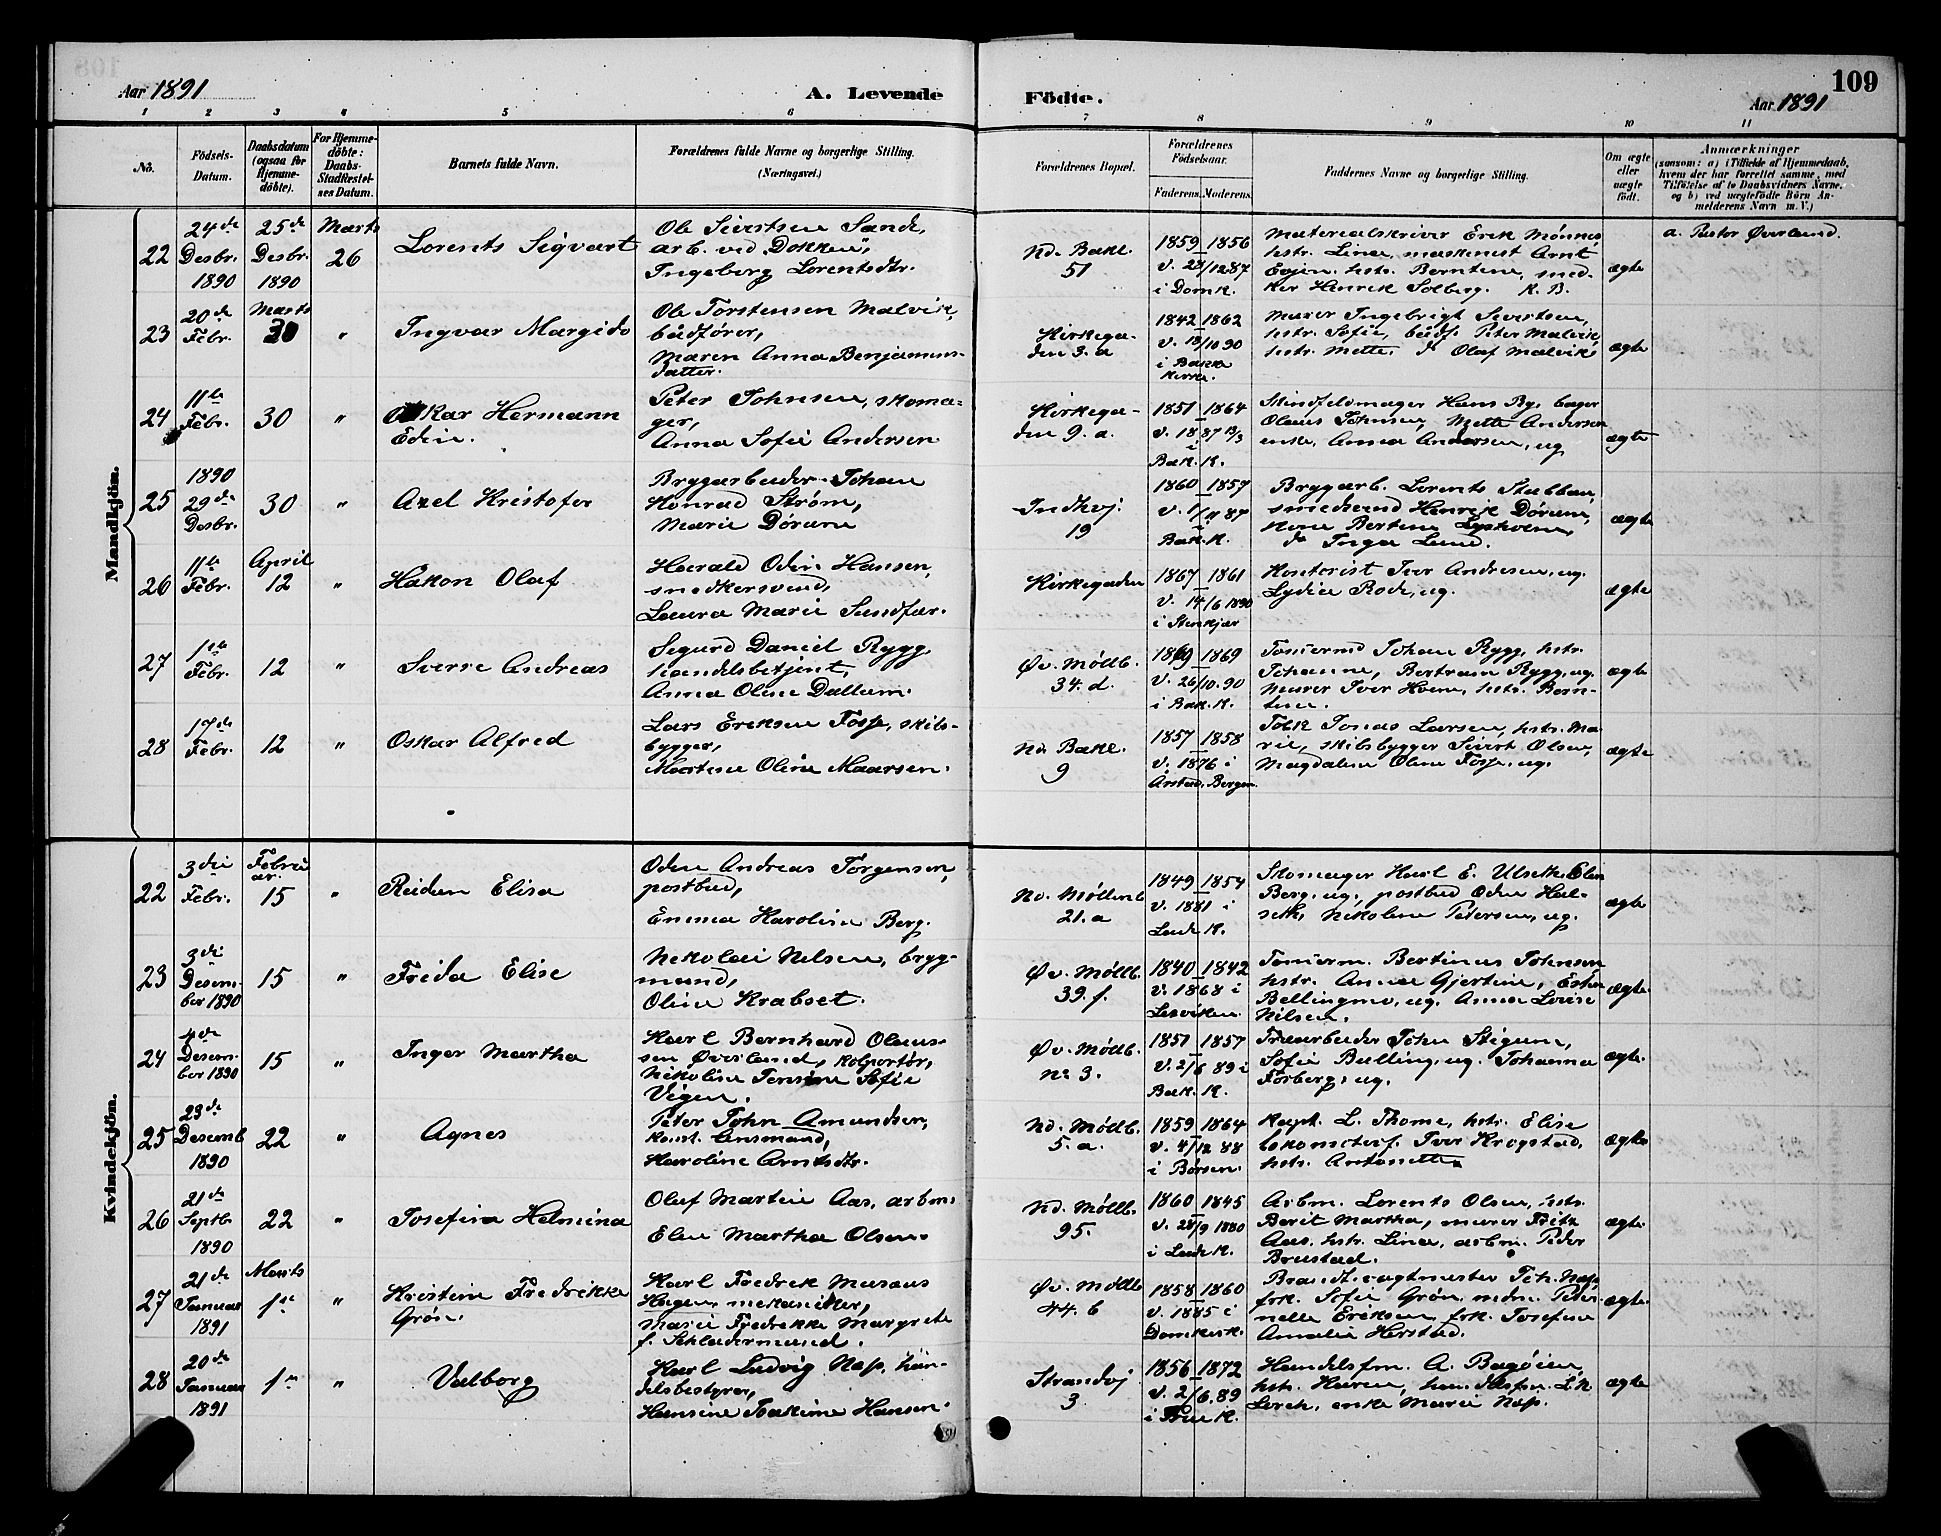 109
Aar 1891
A. Levende
Födte.
Aar 1891
1 2 3 4 5 6 7 8 9 10 11
No.
Födsels-
Datum.
Daabsdatum
(ogsaa for
Hjemme-
döbte).
For Hjemme-
döbte:
Daabs-
Stadfæstel-
ses Datum.
Barnets fulde Navn.
Forældrenes fulde Navne og borgerlige Stilling.
(Næringsvei.)
Forældrenes Bopæl.
Forældrenes
Födselsaar.
Faderens. Moderens.
Faddernes Navne og borgerlige Stilling.
Om ægte
eller
uægte
födt.
Anmærkninger
(saasom: a) i Tilfælde af Hjemmedaab,
hvem der har forrettet samme, med
Tilföielse af to Daabsvidners Navne,
og b) ved uægtefödte Börn An-
melderens Navn m. V.)
Mandkjön.
22
24de
Desbr.
1890
25de
Desbr.
1890
Marts
26
Lorents Sigvart
Ole Sivertsen Sand,
arb. ved "Dokken",
Ingeborg Lorentsdtr.
Nd. Bakl.
51
1859 1856
v. 28/12 87
i Domk.
Materialskriver Erik Mónnes,
hstr. Lina, maskinist Arnt
hstr. Berntine, sned-
ker Henrik Solberg. K. B.
ægte
a. Pastor Øverland.
23
20de
Febr.
Marts
30
"
Ingvar Margido
Ole Torstensen Malvik,
bådfører,
Maren Anna Benjamins-
datter.
Kirkega-
den 3. a
1842 1862
v. 18/10 90
i Bakke
Kirke.
Murer Ingebrigt Sivertsen,
hstr. Sofie, bådf. Peter Malvik,
hstr. Mette, do Olaf Malvik
ægte
24
11te
Febr.
30
"
Oskar Hermann
Edin.
Peter Johnsen, skoma-
ger,
Anna Sofie Andersen
Kirkega-
den 9. a.
1851 1864
v. 1887 13/3
i
Bak. K.
Skindfeldmager Hans By, bager
Olaus Johnsen, Mette Andersen
enke, Anna Andersen, ug
ægte
25
1890
29de
Desbr.
30
"
Axel Kristofer
Bryggarbeider Johan
Konrad Strøm,
Marie Dórum
Indhvj.
19
1860 1857
v. 1/4 87
i
Bak. K.
Bryggarb. Lorents Stubban,
smedsvend Henrik Dórum,
Kone Bertine Lysholm,
do Inga Lund.
ægte
26
11te
Febr.
April
12
"
Håkon Olaf
Harald Odin Hansen,
snedkersvend,
Laura Marie Sundfær.
Kirkegaden
1867 1861
v. 14/6 1890
i Stenkjær
Kontorist Iver Andresen, ug.
Lydia Rode, ug.
ægte
27
1ste
Febr.
12
"
Sverre Andreas
Sigurd Daniel Rygg,
handelsbetjent,
Anna Oline Dallum.
Øv. Möllb.
34. d.
1869 1869
v. 26/10. 90
i Bak. K.
Tømermd Johan Rygg, hstr.
Johanne, Bertram Rygg, ug.
Murer Iver Hoem, hstr. Bern-
tine.
ægte
28
17de
Febr.
12
"
Oskar Alfred
Lars Eriksen Fosse, skibs-
bygger,
Martine Oline Maarsen.
Nd. Bakl.
9
1857 1858
v. 1876 i
Årstad, Bergen
Tolk Jonas Larsen, hstr. Ma-
rie, skibsbygger Sivert Olsen,
Magdalena Oline Fosse, ug.
ægte
Kvindekjön.
22
3die
Febr.
Febru-
ar.
15
"
Reidun Elisa
Odin Andreas Jörgensen,
postbud,
Emma Karoline Berg.
Nd. Möllenb
21. a
1849 1854
v. 1881 i
Lade K.
Skomager Karl E. Ulseth, Elen
Berg, ug., postbud Odin Hal-
seth, Nikoline Petersen, ug.
ægte
23
3die
Desem-
ber 1890
15
"
Frida Elise
Nikolai Nilsen, bryg-
mand,
Oline Krabset.
Øv. Möllb.
39. f.
1840 1842
v. 1868 i
Leksviken.
Tømerm. Bertinus Johnsen
hstr. Anna Gjertine, Ester
Bellingmo, ug. Anna Lovise
Nilsen.
ægte.
24
4de
Desem-
ber 1890
15
"
Inger Martha
Karl Bernhard Olaus-
sen Øverland, kolportör,
Nikoline Jensine Sofie
Vigen.
Øv. Möllb.
No 3.
1851 1857
v. 2/6 89 i
Bak. K.
Træarbeider John Stigum,
Sofie Bulling, ug. Johanna
Forberg, ug.
ægte.
25
23de
Desemb
1890
22
"
Agnes
Peter John Amundsen,
Karoline Arntsdtr.
Nd. Möllb.
5. a.
1859 1864
v. 4/12 88
i Börsen.
Kapt. L. Thome, hstr. Elise
lokomotivf. Iver Krogstad,
hstr. Antonette
ægte
26
21de
Septb.
1890
22
"
Josefina Helmina
Olaf Martin Aas, arbm.
Elen Martha Olsen.
Nd. Möllb.
95.
1860 1845
v. 28/9 1880
i Lade K.
Arbm. Lorents Olsen, hstr.
Berit Martha, murer Fritz
Aas, hstr. Lina, arbm. Peder
Brustad.
ægte.
27
21de
Januar
1891
Marts
1ste
"
Kristine Fredrikke
Grön.
Karl Fredrik Musæus
Hagen, mekaniker,
Marie Fredrikke Margrete
f. Schladermund.
Øv. Möllb
44. b
1858 1860
v. 1885 i
Domkirk.
Brandt. vagtmester Joh. Nap,
frk. Sofie Grön, mdm. Peter-
nelle Eriksen, frk. Josefine
Amalie Herstad.
ægte.
28
20de
Januar
1891
1ste
"
Valborg
Karl Ludvig Nap, han-
delsbestyrer,
Hansine Joakime Hansen.
Strandvj
3
1856 1872
v. 2/6. 89
i K.
Handelsfm. A. Bagöien,
hstr. Karen, handelsfm. L. K.
Lorck, enke Marie Nap.
ægte